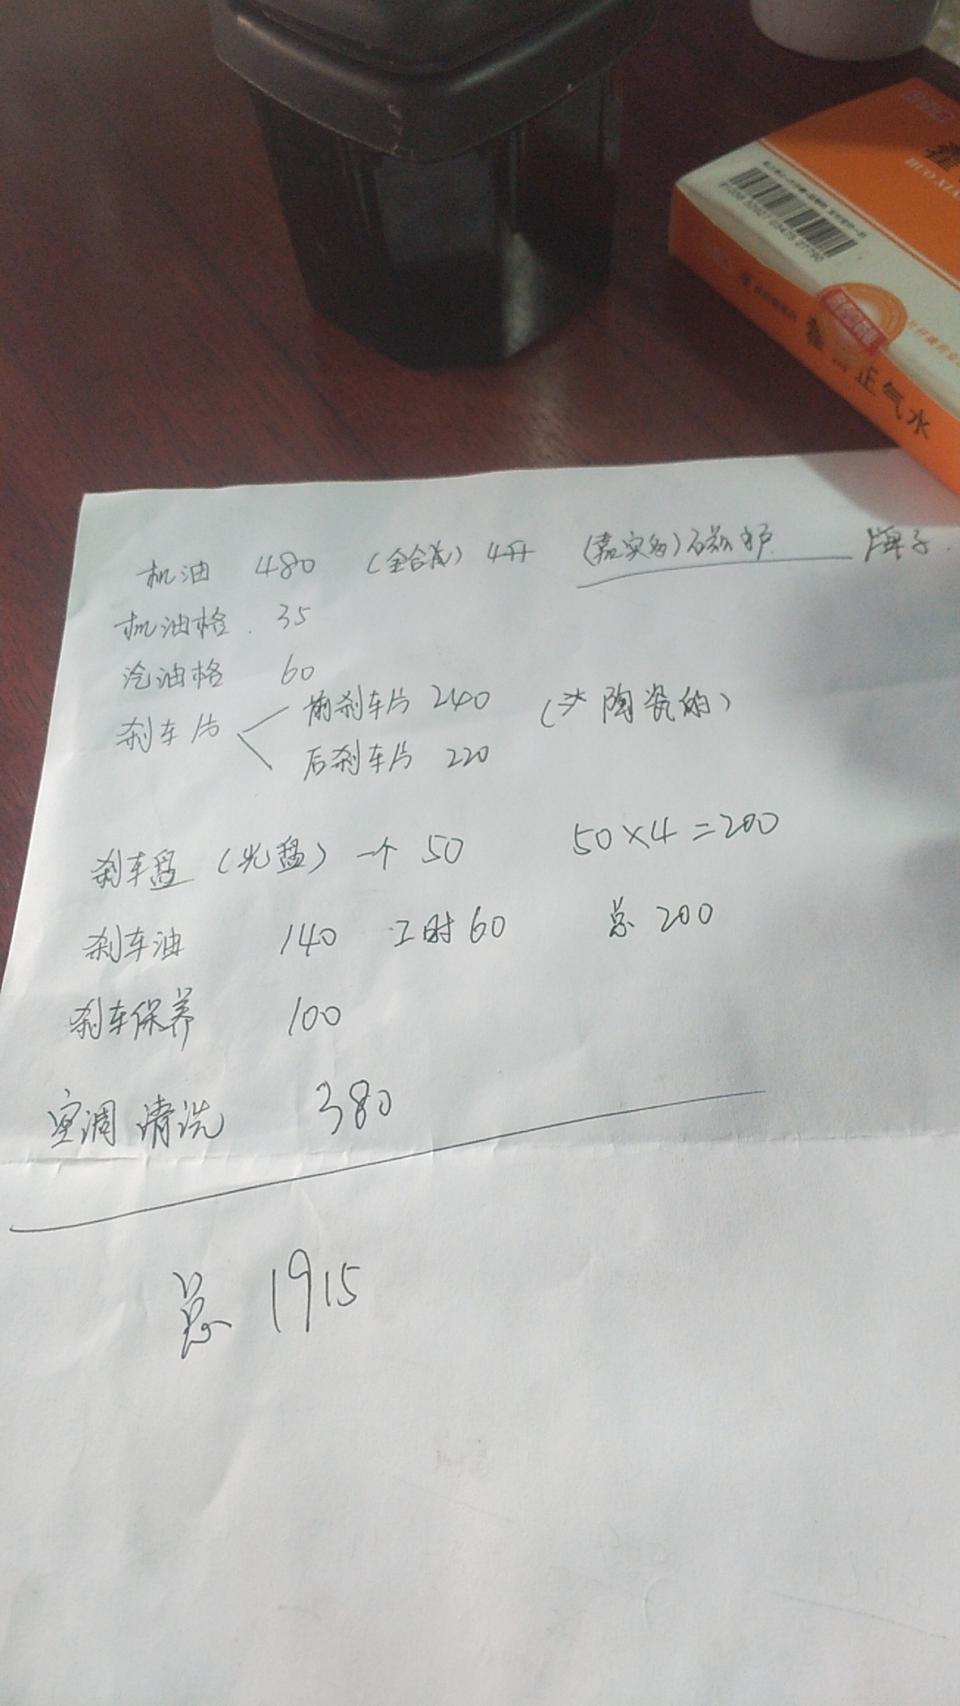 机油 480 (全合成) 4升 (嘉实多)磁护 牌子.
机油格. 35
汽油格 60
刹车片 前刹车片 240 (半陶瓷的)
后刹车片 220
刹车盘 (光盘) 一个 50 50×4=200
刹车油 140 工时60 总 200
刹车保养 100
空调清洗 380
总 1915
HUO XIA
正气水